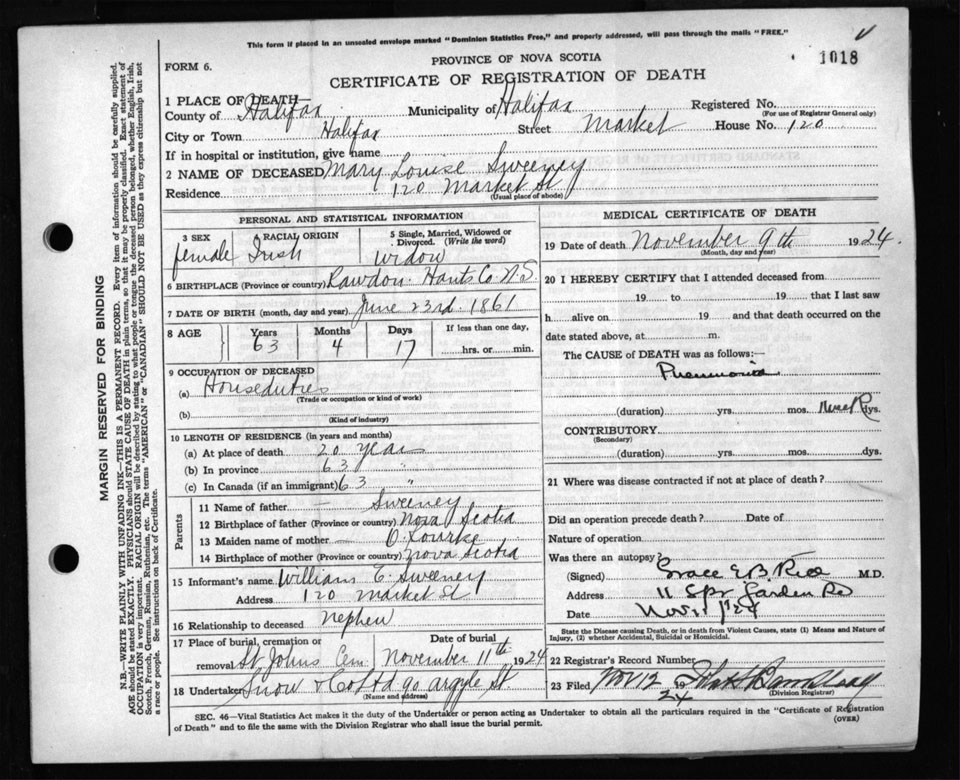 This form if placed in an unsealed envelope marked "Dominion Statistics Free," and properly addressed, will pass through the mails "FREE."
1018
PROVINCE OF NOVA SCOTIA
FORM 6.
CERTIFICATE OF REGISTRATION OF DEATH
1 PLACE OF DEATH—
County of Halifax Municipality of Halifax Registered No.
(For use of Registrar General only)
City or Town Halifax Street Market House No. 120
If in hospital or institution, give name
2 NAME OF DECEASED Mary Louise Sweeney
Residence 120 Market St
(Usual place of abode)
PERSONAL AND STATISTICAL INFORMATION
3 SEX 4 RACIAL ORIGIN 5 Single, Married, Widowed or Divorced. (Write the word)
female Irish Widow
6 BIRTHPLACE (Province or country) Rawdon Hants Co N.S.
7 DATE OF BIRTH (month, day and year) June 23rd 1861
8 AGE Years Months Days If less than one day,
63 4 17 hrs. or min.
9 OCCUPATION OF DECEASED
(a) Houseduties
(Trade or occupation or kind of work)
(b)
(Kind of industry)
10 LENGTH OF RESIDENCE (in years and months)
(a) At place of death 20 years
(b) In province 63 "
(c) In Canada (if an immigrant) 63 "
Parents
11 Name of father — Sweeney
12 Birthplace of father (Province or country) Nova Scotia
13 Maiden name of mother — O Rourke
14 Birthplace of mother (Province or country) Nova Scotia
15 Informant's name William E. Sweeney
Address 120 Market St
16 Relationship to deceased nephew
17 Place of burial, cremation or removal St Johns Cem. Date of burial November 11th 1924
18 Undertaker Snow & Co Ltd 90 Argyle St.
(Name and address)
MEDICAL CERTIFICATE OF DEATH
19 Date of death November 9th 1924.
(Month, day and year)
20 I HEREBY CERTIFY that I attended deceased from
19 to 19 that I last saw
h alive on 19 and that death occurred on the
date stated above, at m.
The CAUSE of DEATH was as follows:—
Pneumonia
(duration) yrs. mos. dys.
CONTRIBUTORY
(Secondary)
(duration) yrs. mos. dys.
21 Where was disease contracted if not at place of death?
Did an operation precede death? Date of
Nature of operation
Was there an autopsy?
(Signed) Grace E.B. Rice M.D.
Address 11 Spr Garden Rd
Date Nov 11/24
State the Disease causing Death, or in death from Violent Causes, state (1) Means and Nature of
Injury, (2) whether Accidental, Suicidal or Homicidal.
22 Registrar's Record Number
23 Filed Nov 12 1924
(Division Registrar)
SEC. 46—Vital Statistics Act makes it the duty of the Undertaker or person acting as Undertaker to obtain all the particulars required in the "Certificate of Registration
of Death" and to file the same with the Division Registrar who shall issue the burial permit.
(OVER)
MARGIN RESERVED FOR BINDING
N.B.—WRITE PLAINLY WITH UNFADING INK—THIS IS A PERMANENT RECORD. Every item of information should be carefully supplied.
AGE should be stated EXACTLY. PHYSICIANS should STATE CAUSE OF DEATH in plain terms, so that it may be properly classified. Exact statement of
OCCUPATION is very important. RACIAL ORIGIN will be described by stating to what people or tongue the deceased person belonged, whether English, Irish,
Scotch, French, German, Russian, Ruthenian, etc. The terms "AMERICAN" or "CANADIAN" SHOULD NOT BE USED as they express citizenship but not
a race or people. See instructions on back of Certificate.